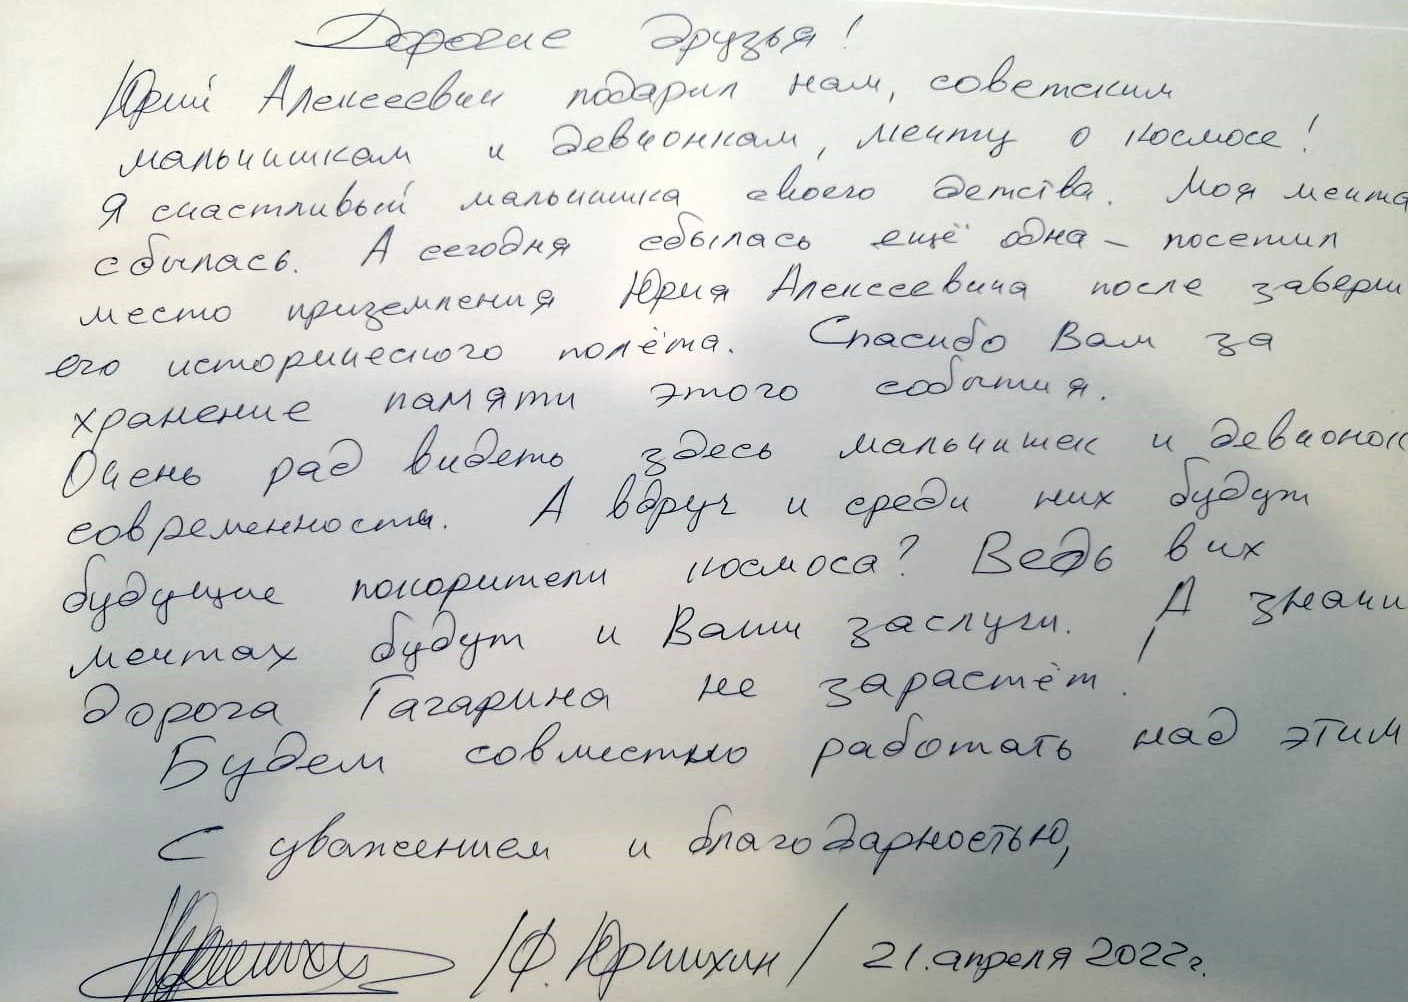 Дорогие друзья!
Юрий Алексеевич подарил нам, советским
мальчишкам и девчонкам, мечту о космосе!
Я счастливый мальчишка своего детства. Моя мечта
сбылась. А сегодня сбылась ещё одна – посетил
место приземления Юрия Алексеевича после заверш
его исторического полёта. Спасибо Вам за
хранение памяти этого события.
Очень рад видеть здесь мальчишек и девчонок
современности. А вдруг и среди них будут
будущие покорители космоса? Ведь в их
мечтах будут и Ваши заслуги. А значи
дорога Гагарина не зарастёт!
Будем совместно работать над этим
С уважением и благодарностью,
/Ф. Юрчихин/ 21. апреля 2022г.